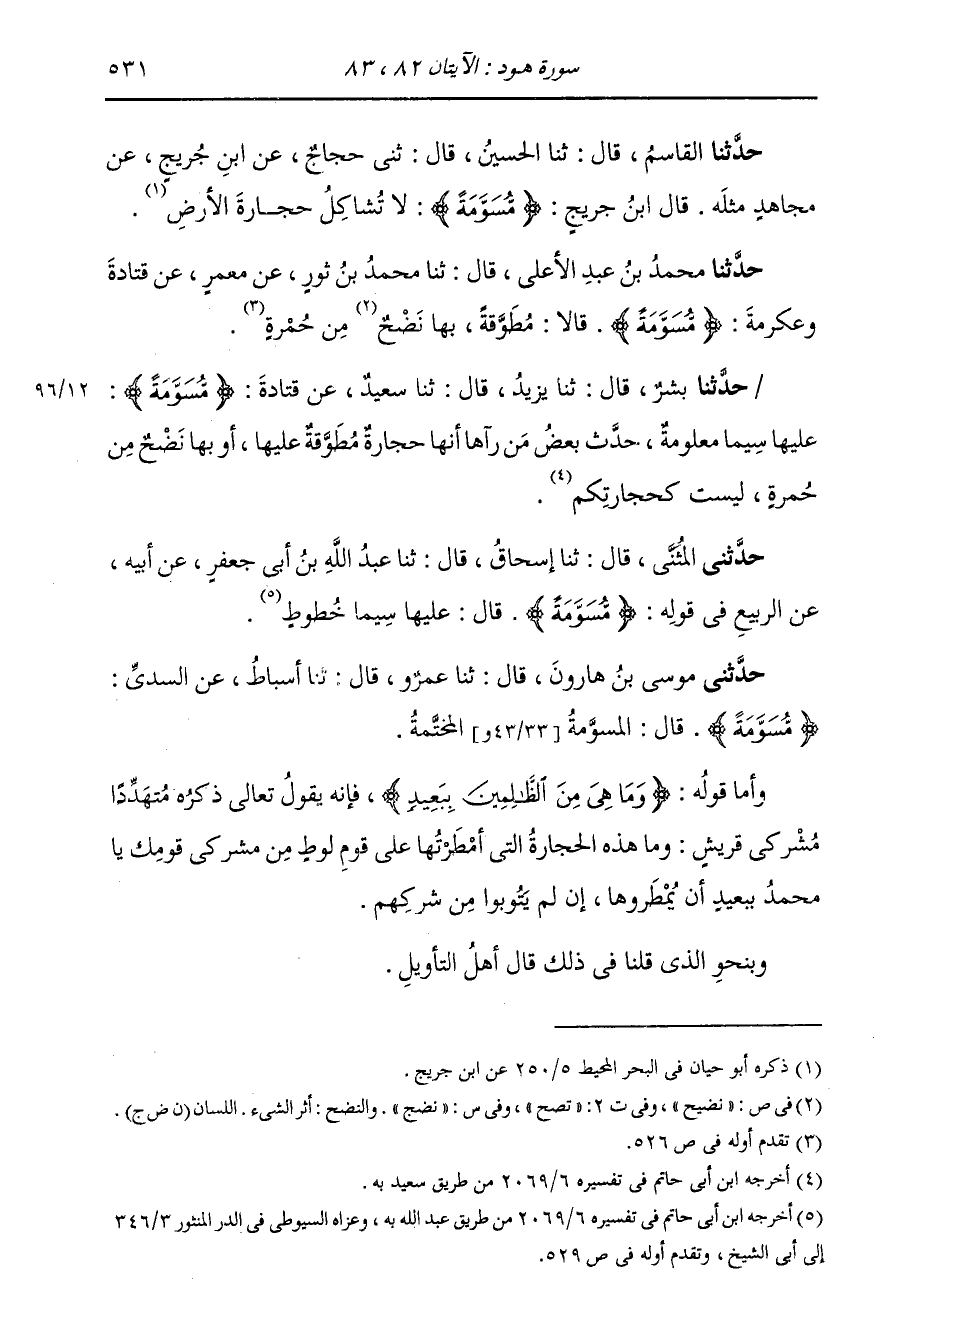 سورة هود : الآيتان ٨٢ ، ٨٣ ٥٣١
حدَّثنا القاسمُ ، قال : ثنا الحسينُ ، قال : ثنى حجاجٌ ، عن ابنِ جُريجٍ ، عن
مجاهدٍ مثلَه . قال ابنُ جريجٍ : ﴿ مُّسَوَّمَةً ﴾ : لا تُشاكِلُ حجـارةَ الأرضِ(١) .
حدَّثنا محمدُ بنُ عبدِ الأعلى ، قال : ثنا محمدُ بنُ ثورٍ ، عن معمرٍ ، عن قتادةَ
وعكرمةَ : ﴿ مُّسَوَّمَةً ﴾ . قالا : مُطَوَّقةً ، بها نَضْحٌ(٢) مِن حُمْرةٍ(٣) .
/ حدَّثنا بشرٌ ، قال : ثنا يزيدُ ، قال : ثنا سعيدٌ ، عن قتادةَ : ﴿ مُّسَوَّمَةً ﴾ : ٩٦/١٢
عليها سِيما معلومةٌ ، حدَّث بعضُ مَن رآها أنها حجارةٌ مُطَوَّقةٌ عليها ، أو بها نَضْحٌ مِن
حُمرةٍ ، ليست كحجارتِكم(٤) .
حدَّثنى المُثَنَّى ، قال : ثنا إسحاقُ ، قال : ثنا عبدُ اللَّهِ بنُ أبى جعفرٍ ، عن أبيه ،
عن الربيعِ فى قولِه : ﴿ مُّسَوَّمَةً ﴾ . قال : عليها سِيما خُطوطٍ(٥) .
حدَّثنى موسى بنُ هارونَ ، قال : ثنا عمرٌو ، قال : ثنا أسباطُ ، عن السدىِّ :
﴿ مُّسَوَّمَةً ﴾ . قال : المسوَّمةُ [٤٣/٣٣و] المختَّمةُ .
وأما قولُه : ﴿ وَمَا هِىَ مِنَ ٱلظَّٰلِمِينَ بِبَعِيدٍ ﴾ ، فإنه يقولُ تعالى ذكرُه مُتهَدِّدًا
مُشْركى قريشٍ : وما هذه الحجارةُ التى أمْطَرْتُها على قومِ لوطٍ مِن مشركى قومِك يا
محمدُ ببعيدٍ أن يُمْطَروها ، إن لم يَتُوبوا مِن شركِهم .
وبنحوِ الذى قلنا فى ذلك قال أهلُ التأويلِ .
(١) ذكره أبو حيان فى البحر المحيط ٢٥٠/٥ عن ابن جريج .
(٢) فى ص : « نضيح » ، وفى ت ٢ : « تصح » ، وفى س : « نضج » . والنضح : أثر الشىء . اللسان (ن ض ج) .
(٣) تقدم أوله فى ص ٥٢٦.
(٤) أخرجه ابن أبى حاتم فى تفسيره ٢٠٦٩/٦ من طريق سعيد به .
(٥) أخرجه ابن أبى حاتم فى تفسيره ٢٠٦٩/٦ من طريق عبد الله به ، وعزاه السيوطى فى الدر المنثور ٣٤٦/٣
إلى أبى الشيخ ، وتقدم أوله فى ص ٥٢٩.